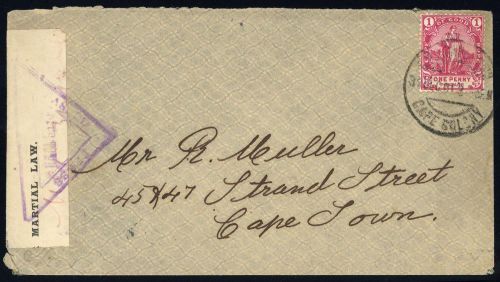 1 1
ONE PENNY
CAPE COLONY
MARTIAL LAW.
Mr R. Muller
45 & 47 Strand Street
Cape Town.